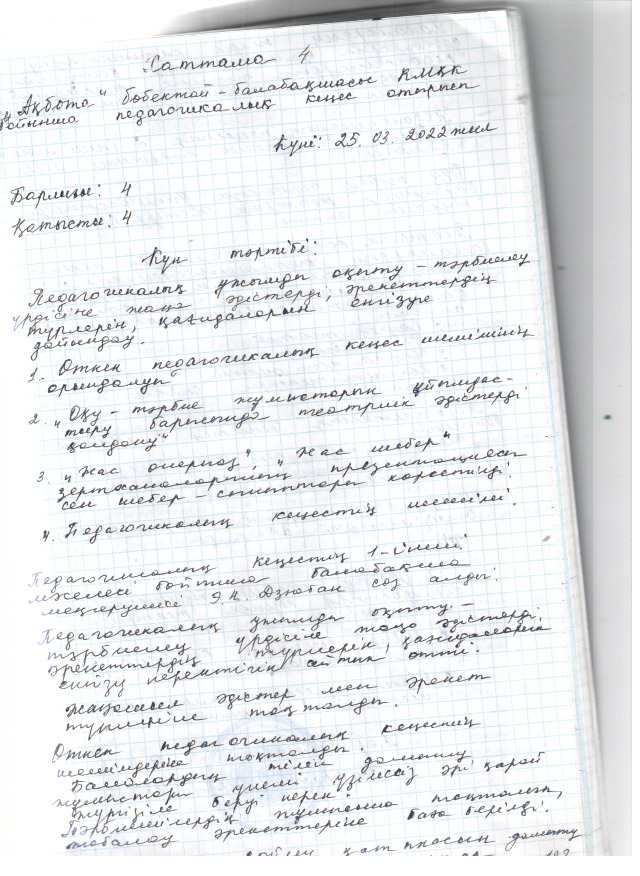 Саттама 4
"Ақбота" бөбектой-балабақшасы КМҚК
бойынша педагогикалық кеңес отырысы
Күні: 25.03.2022 жыл
Барлығы: 4
Қатысты: 4
Күн тәртібі:
Педагогикалық ұжымды оқыту-тәрбиелеу
үрдісіне жаңа әдістерді, әрекеттердің
түрлерін, қағидаларын енгізуге
дайындау.
1. Өткен педагогикалық кеңес шешімінің
орындалуы
2. "Оқу-тәрбие жұмыстарын ұйымдас-
тыру барысында театрлік әдістерді
қолдану"
3. "Жас өнерпаз", "Жас шебер"
зертханаларының презентациясы
мен шебер-сыныптары көрсетілді.
4. Педагогикалық кеңестің шешімі.
Педагогикалық кеңестің 1-інші
мәселесі бойынша балабақша
меңгерушісі Э.Н. Дзюбан сөз алды.
Педагогикалық ұжымды оқыту-
тәрбиелеу үрдісіне жаңа әдістерді,
әрекеттердің түрлерін, қағидаларын
енгізу керектігін айтып өтті.
Жаңашыл әдістер мен әрекет
түрлеріне тоқталды.
Өткен педагогикалық кеңестің
шешімдеріне тоқталды.
Балалардың тілін дамыту
жұмыстары үнемі үзіліссіз әрі қарай
жүргізіле беруі керек.
Тәрбиешілердің жұмысына тоқталып,
жобалау әрекеттеріне баға берілді.
қатынасын дамыту